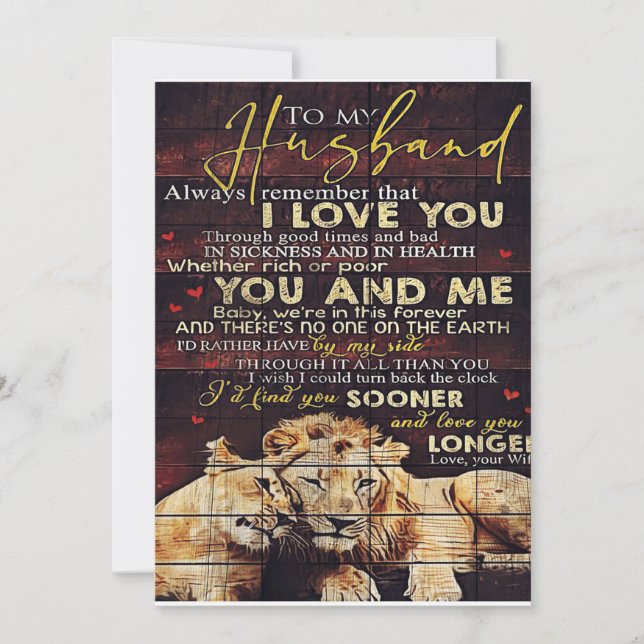 TO MY
Husband
Always remember that
I LOVE YOU
Through good times and bad
IN SICKNESS AND IN HEALTH
Whether rich or poor
YOU AND ME
Baby, we're in this forever
AND THERE'S NO ONE ON THE EARTH
I'D RATHER HAVE by my side
THROUGH IT ALL THAN YOU
I wish I could turn back the clock
I'd find you SOONER
and love you
LONGE
Love, your Wif